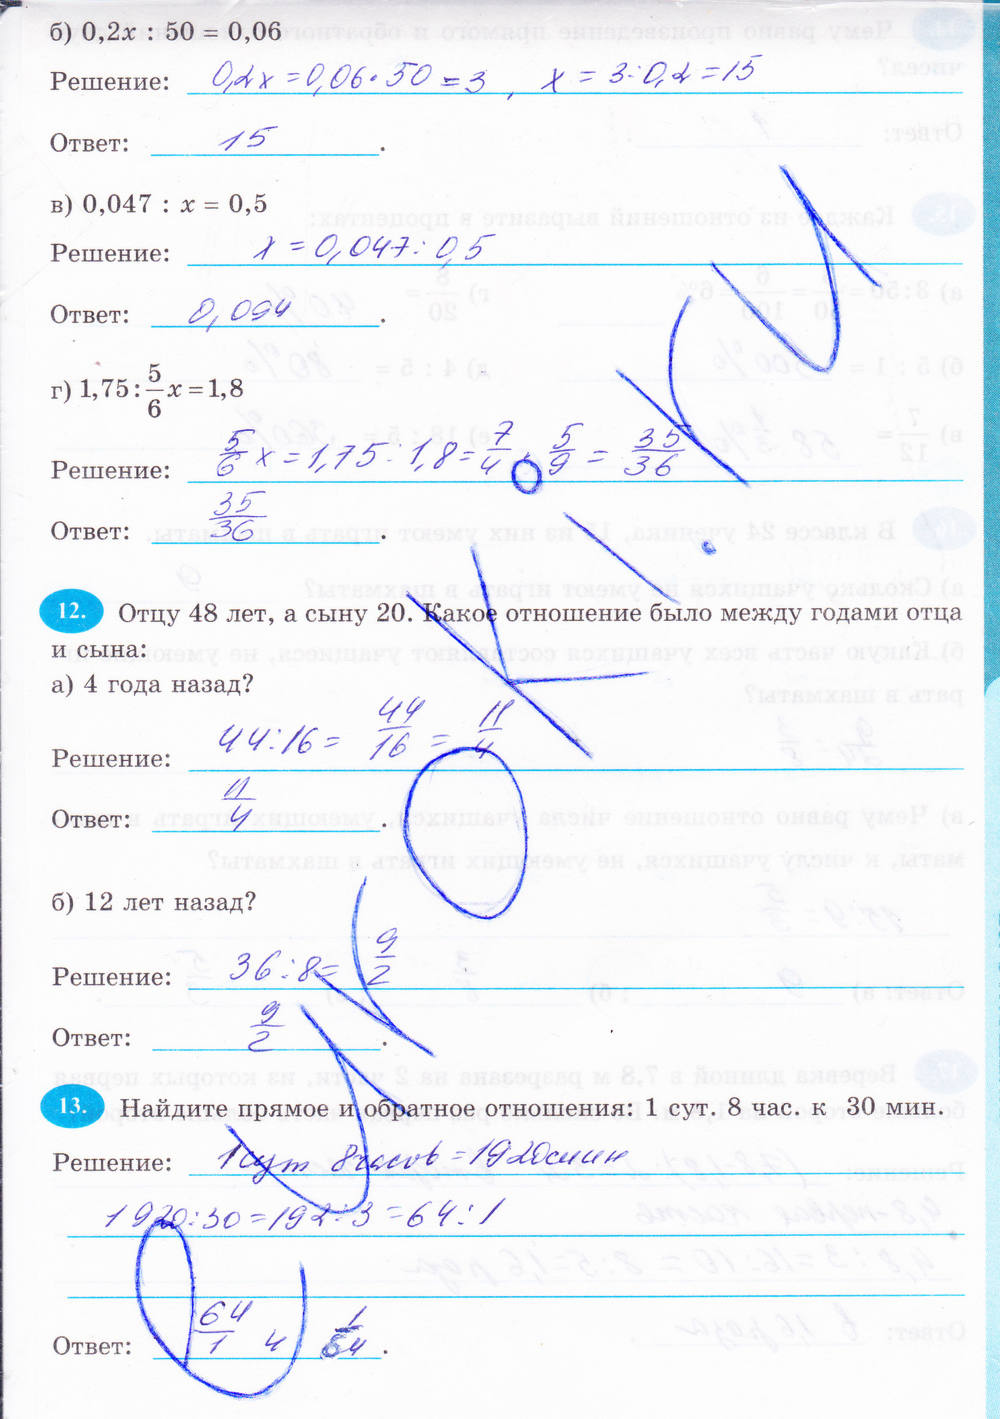 б) 0,2x : 50 = 0,06
Решение: 0,2x = 0,06 • 50 = 3 , x = 3 : 0,2 = 15
Ответ: 15 .
в) 0,047 : x = 0,5
Решение: x = 0,047 : 0,5
Ответ: 0,094 .
г) 1,75 : 5/6 x = 1,8
Решение: 5/6 x = 1,75 : 1,8 = 7/4 · 5/9 = 35/36
Ответ: 35/36 .
12. Отцу 48 лет, а сыну 20. Какое отношение было между годами отца
и сына:
а) 4 года назад?
Решение: 44 : 16 = 44/16 = 11/4
Ответ: 11/4 .
б) 12 лет назад?
Решение: 36 : 8 = 9/2
Ответ: 9/2 .
13. Найдите прямое и обратное отношения: 1 сут. 8 час. к 30 мин.
Решение: 1 сут 8 часов = 1920 мин
1920 : 30 = 192 : 3 = 64 : 1
Ответ: 64/1 и 1/64 .